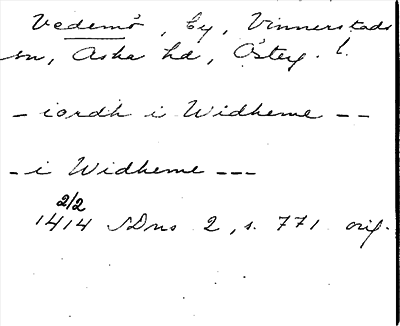 Vedemö, by, Vinnerstads
sn, Aska hd, Östeg. l.
- iordh i Widheme --
- i Widheme ---
2/2
1414 SDns 2, s. 771 orig.